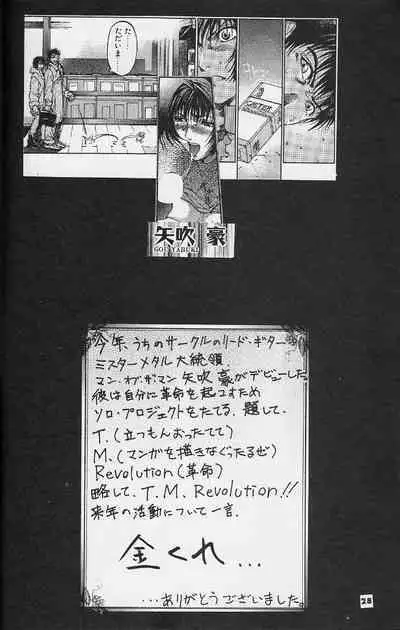 た…
ただいま…
コトン
CASTER
矢吹 豪
GO YABUKI
今年、うちのサークルのリード・ギター
ミスターメタル大統領
マン・オブ・ザ・マン 矢吹 豪がデビューした。
彼は自分に革命を起こすため
ソロ・プロジェクトをたてる、題して、
T.(立つもんおったてて)
M.(マンガを描きなぐったるぜ)
Revolution(革命)
略して、T.M.Revolution!!
来年の活動について一言、
金くれ…
…ありがとうございました。
28